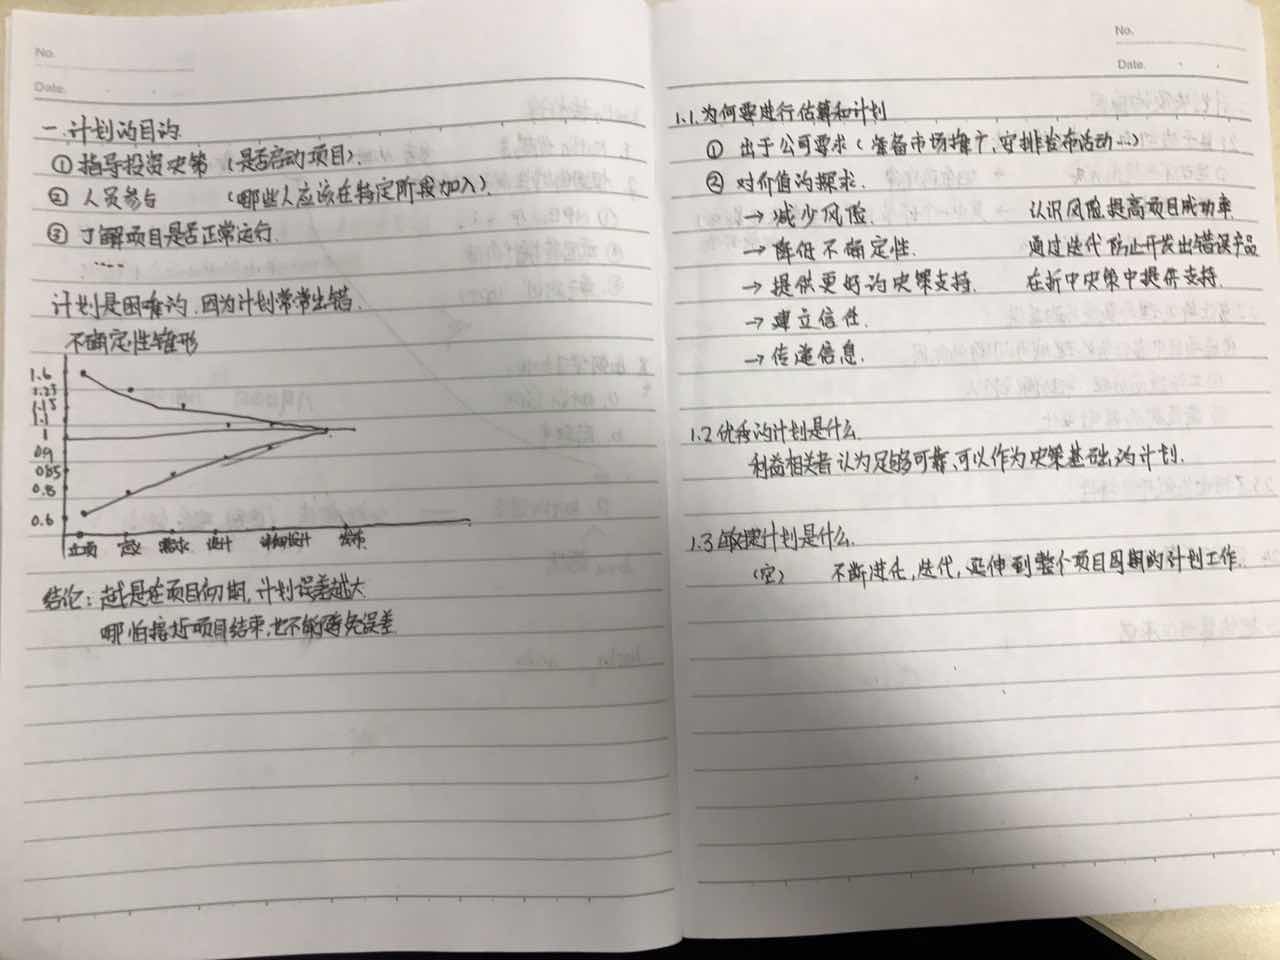 No.
Date.
一.计划的目的
① 指导投资决策 (是否启动项目).
② 人员参与 (哪些人应该在特定阶段加入).
③ 了解项目是否正常运行.
....
计划是困难的,因为计划常常出错.
不确定性锥形
1.6
1.25
1.15
1.1
1
0.9
0.85
0.8
0.6
立项 定义 需求 设计 详细设计 发布
结论: 越是在项目初期,计划误差越大
哪怕接近项目结束,也不能避免误差
No.
Date.
1.1.为何要进行估算和计划
① 出于公司要求 (准备市场推广,安排发布活动...)
② 对价值的探求.
→ 减少风险. 认识风险,提高项目成功率
→ 降低不确定性. 通过迭代防止开发出错误产品
→ 提供更好的决策支持. 在折中决策中提供支持.
→ 建立信任.
→ 传递信息.
1.2 优秀的计划是什么.
利益相关者认为足够可靠,可以作为决策基础的计划.
1.3 敏捷计划是什么.
(空) 不断进化,迭代,延伸到整个项目周期的计划工作.